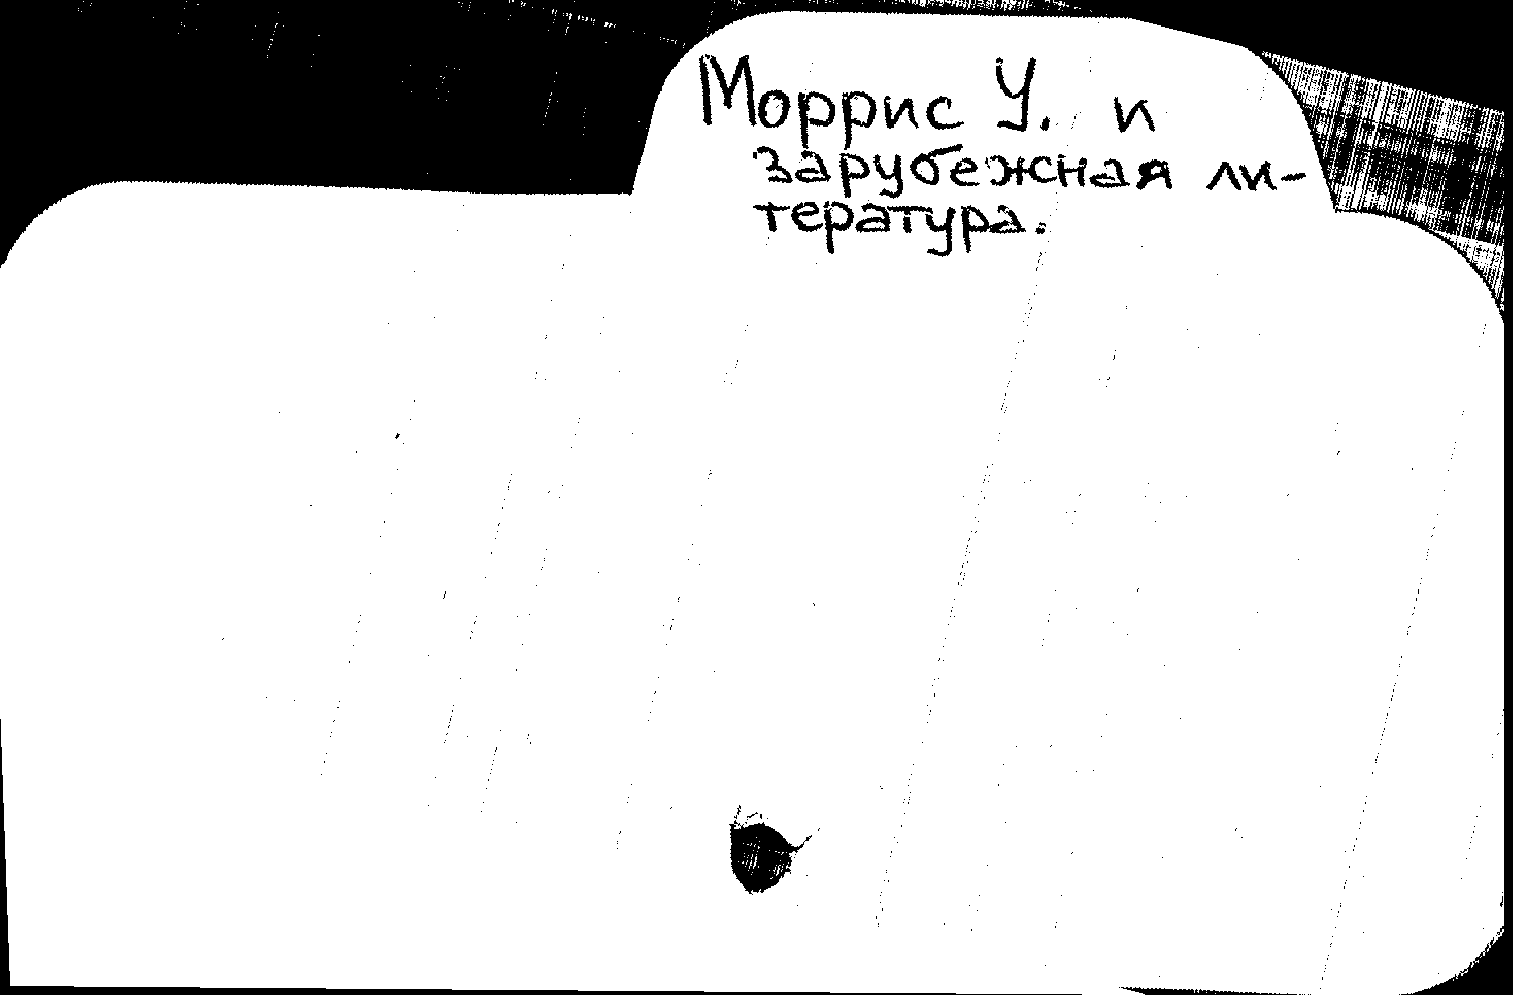 Моррис У. и
зарубежная ли-
тература.